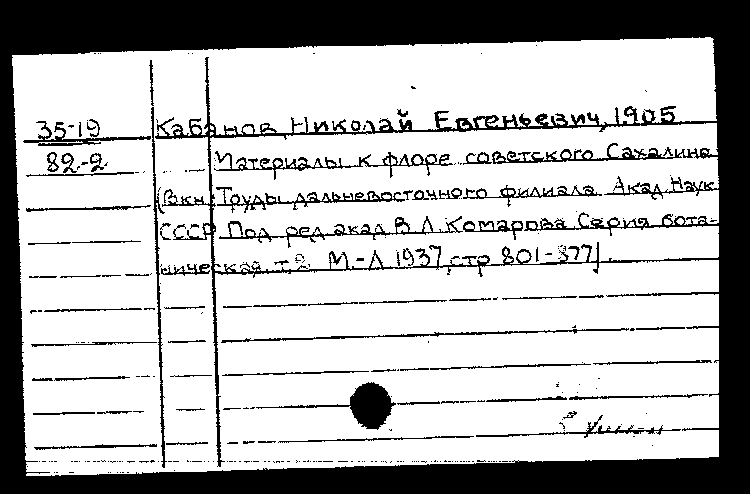 35-19 Кабанов, Николай Евгеньевич, 1905
82-2 Материалы к флоре советского Сахалина
(В кн: Труды дальневосточного филиала Акад. Наук
СССР Под ред. акад. В. Л. Комарова Серия бота-
ническая, т. 2. М.-Л 1937, стр 801-877).